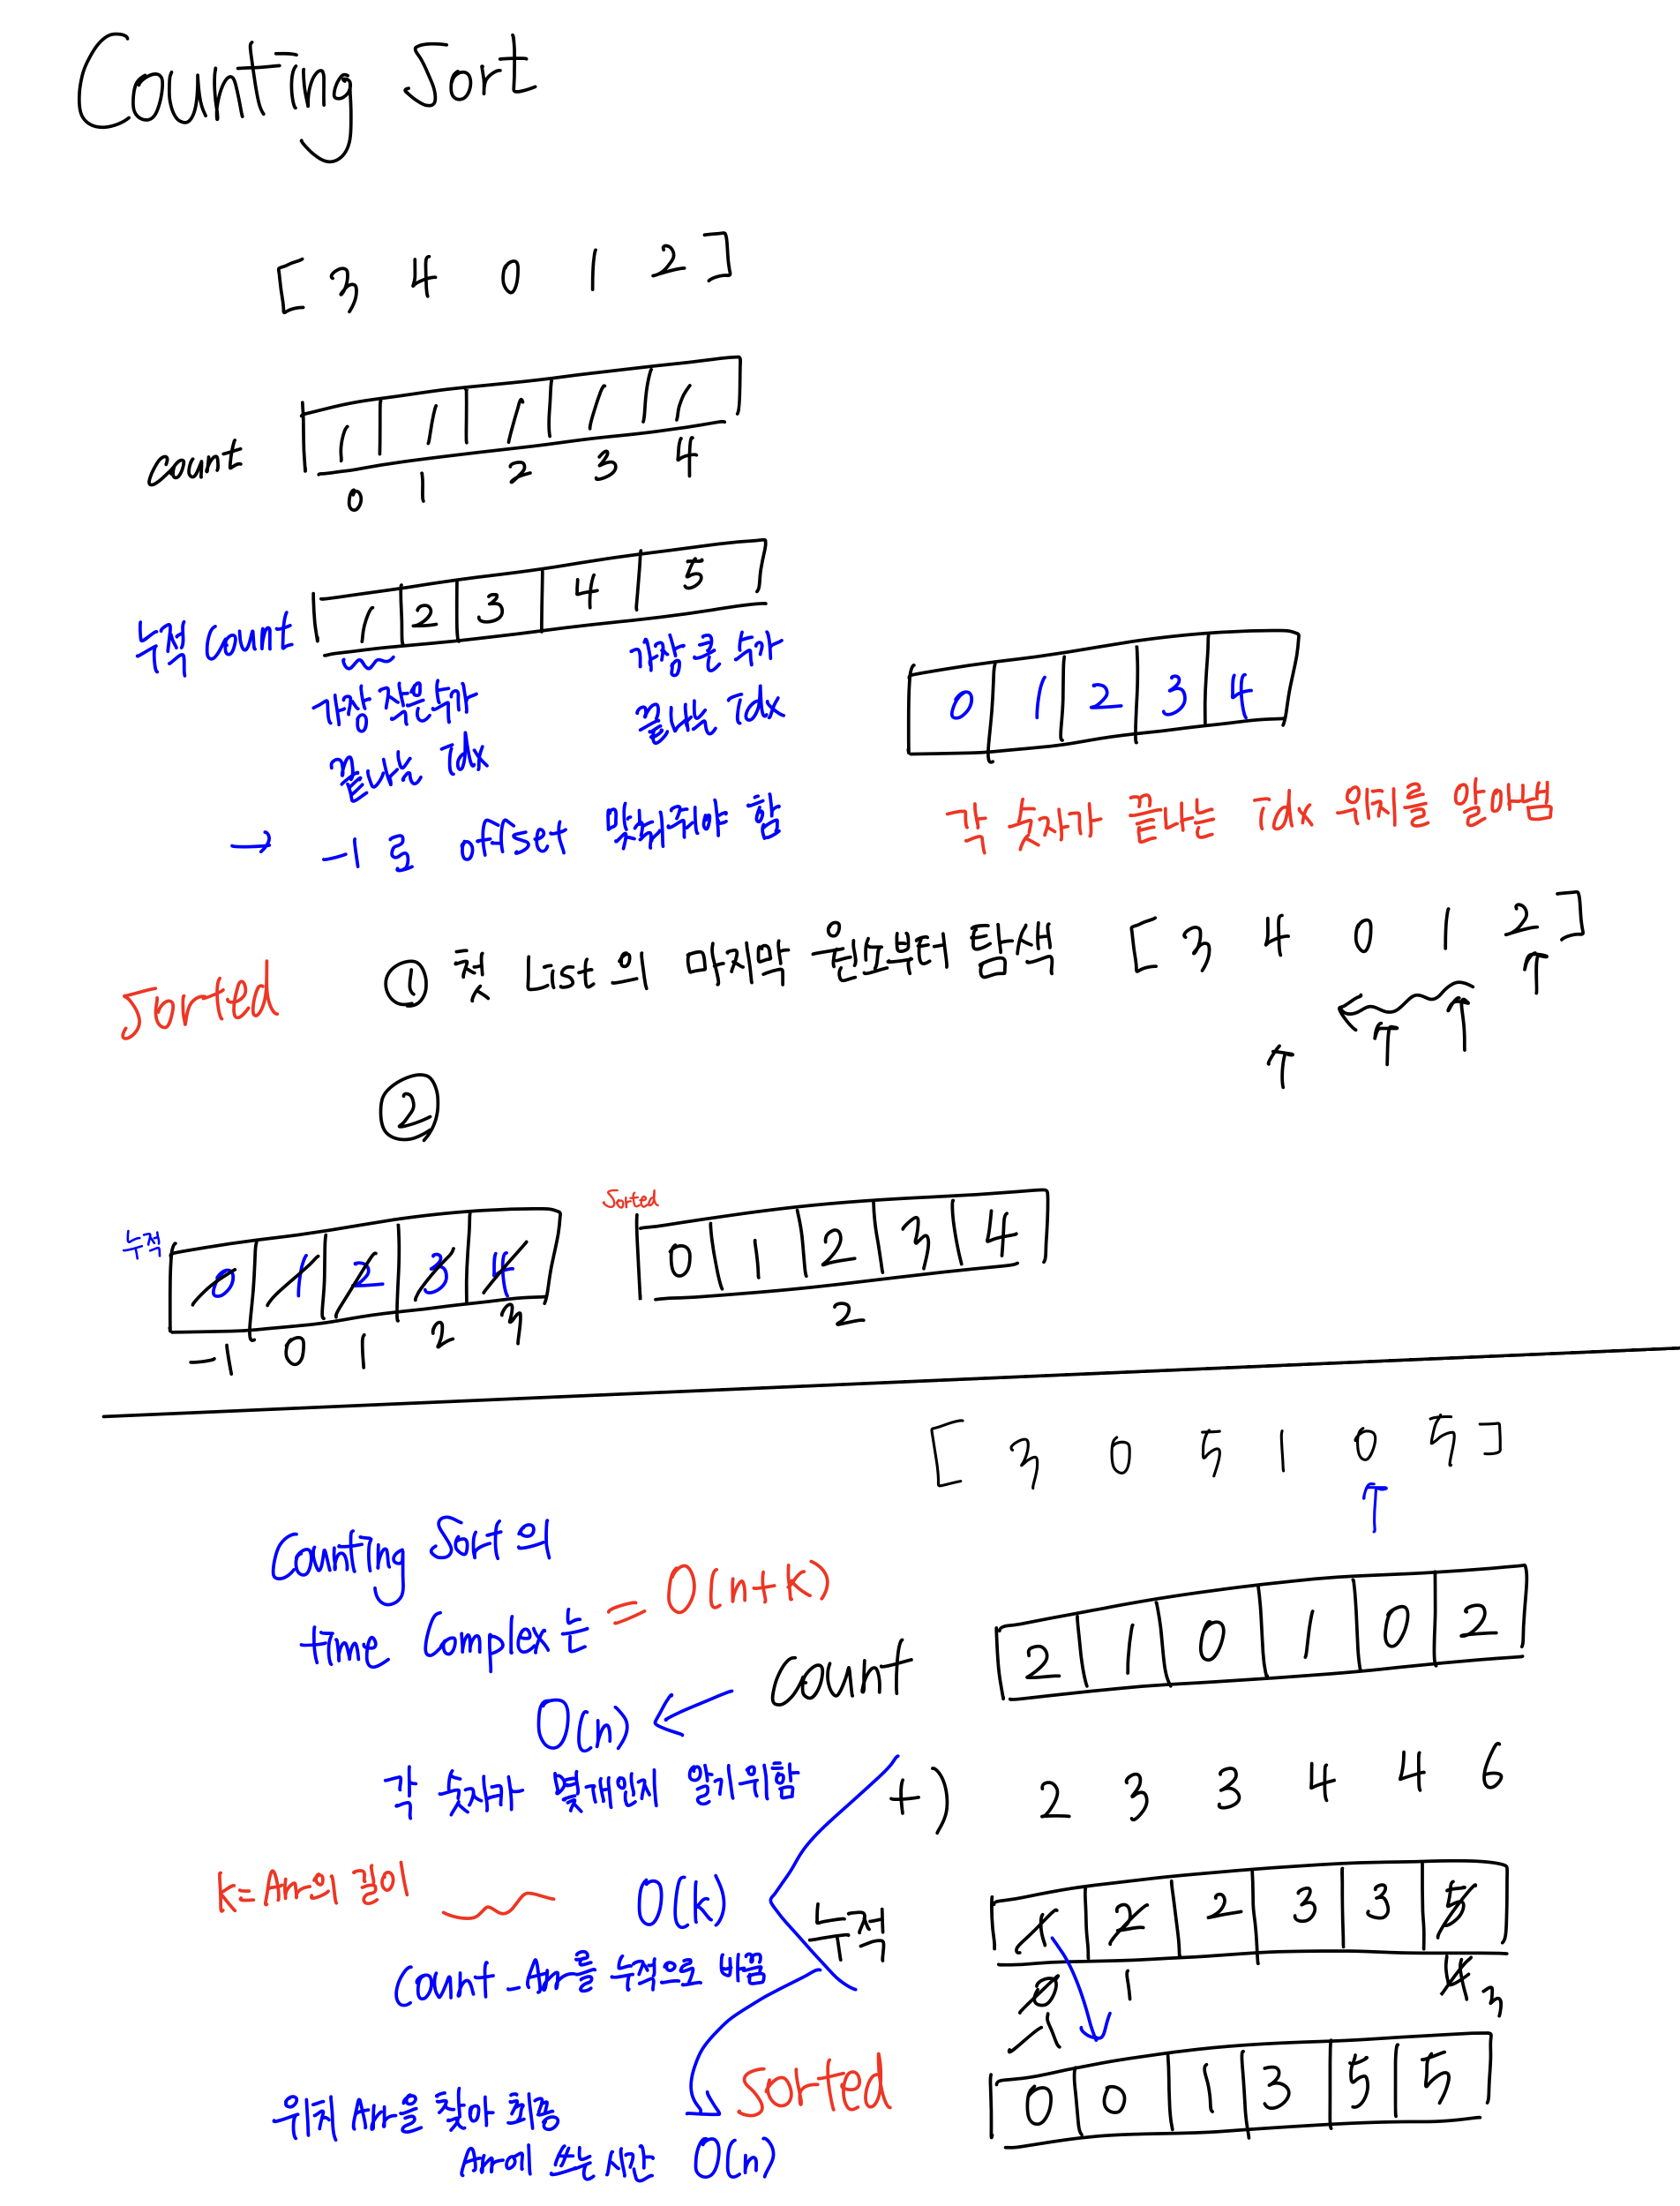 Counting Sort
[ 3 4 0 1 2 ]
count
1 1 1 1 1
0 1 2 3 4
누적 Count
1 2 3 4 5
가장 작은수가
끝나는 idx
가장 큰 수가
끝나는 idx
→ -1로 offset 맞춰줘야 함
0 1 2 3 4
각 숫자가 끝나는 idx 위치를 알아냄
Sorted
① 첫 List의 마지막 원소부터 탐색 [ 3 4 0 1 2 ]
②
누적
0 1 2 3 4
-1 0 1 2 3
Sorted
0 1 2 3 4
2
[ 3 0 5 1 0 5 ]
Counting Sort의
time Complex는 = O(n+k)
Count
2 1 0 1 0 2
O(n) ←
각 숫자가 몇개인지 알기위함
+) 2 3 3 4 4 6
k=Arr의 길이
O(k)
Count_Arr를 누적으로 바꿈
누적
1 2 2 3 3 5
0 1 4 3
-1
Sorted
0 0 1 3 5 5
위치 Arr을 찾아 최종
Arr에 쓰는 시간 O(n)